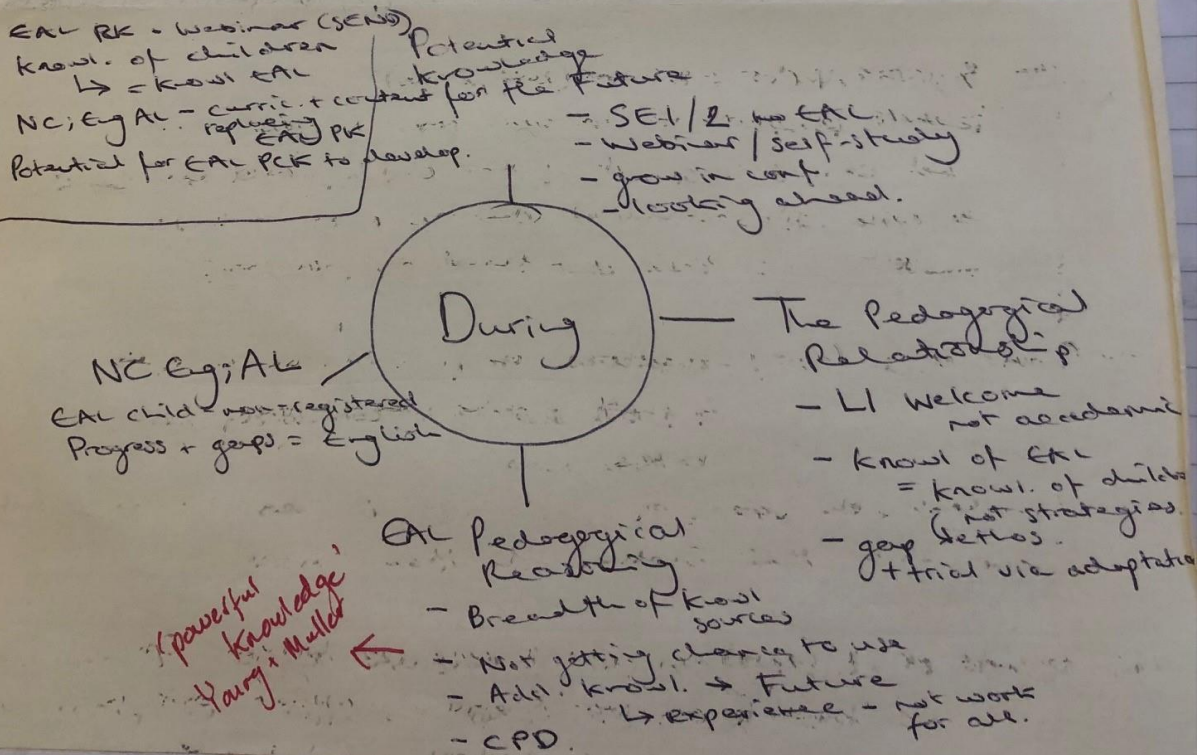 EAL PK - Webinar (SEND)
Knowl. of children
↳ = Knowl EAL
NC; Eng AL - curric. + content
replacing
EAL PK
Potential for EAL PCK to develop.
Potential
Knowledge
for the Future
- SE1/2 no EAL
- Webinar / self-study
- grow in conf.
- looking ahead.
During
The Pedagogical
Relationship
- LI Welcome
not academic
- Knowl of EAL
= Knowl. of
not strategies
- gap
+ trial via
NC Eng; AL
EAL child = non-registered
Progress + gaps = English
EAL Pedagogical
Reasoning
- Breadth of Knowl
sources
- Not getting chance to use
- Add. Knowl. → Future
↳ experience - not work
for all.
- CPD.
'powerful
knowledge'
Young + Muller
←